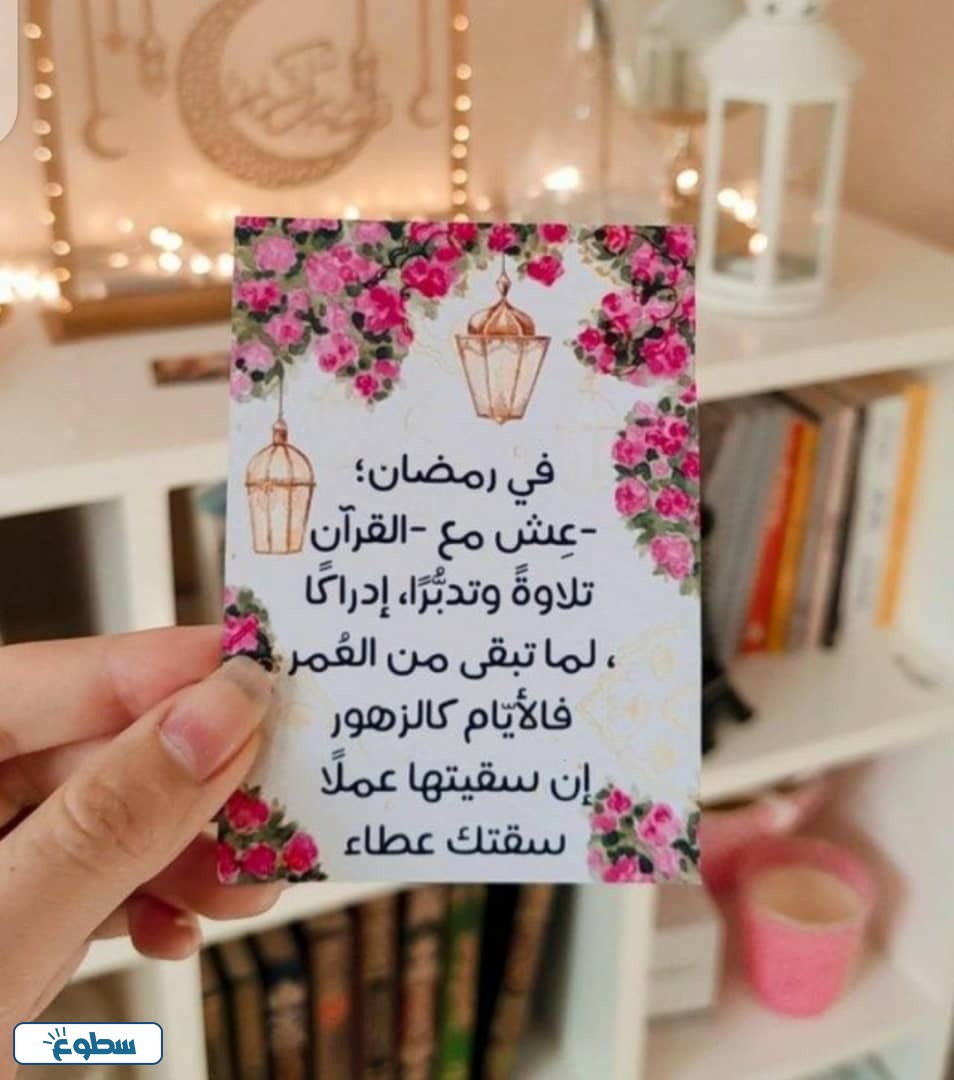 في رمضان؛
-عِش مع -القرآن
تلاوةً وتدبُّرًا، إدراكًا
، لما تبقى من العُمر
فالأيّام كالزهور
إن سقيتها عملًا
سقتك عطاء
سطوع